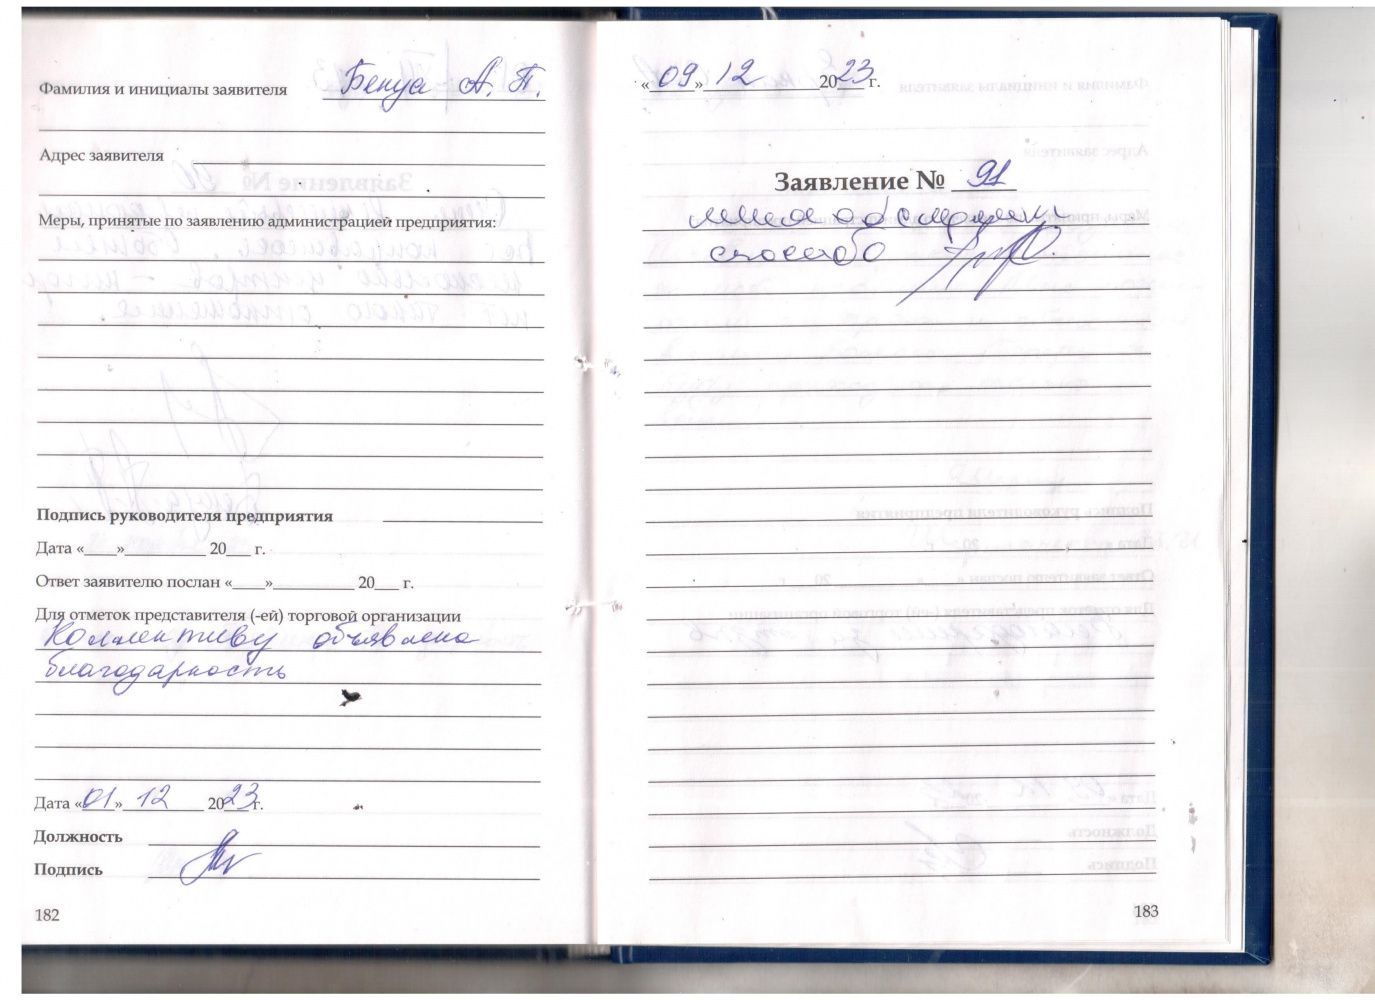 Фамилия и инициалы заявителя Бенуа А. П.
Адрес заявителя
Меры, принятые по заявлению администрацией предприятия:
Подпись руководителя предприятия
Дата «____»__________ 20___ г.
Ответ заявителю послан «____»__________ 20___ г.
Для отметок представителя (-ей) торговой организации
Коллективу объявлена
благодарность
Дата «01» 12 2023г.
Должность
Подпись
182
«09» 12 2023 г.
Заявление № 91
спасибо
183